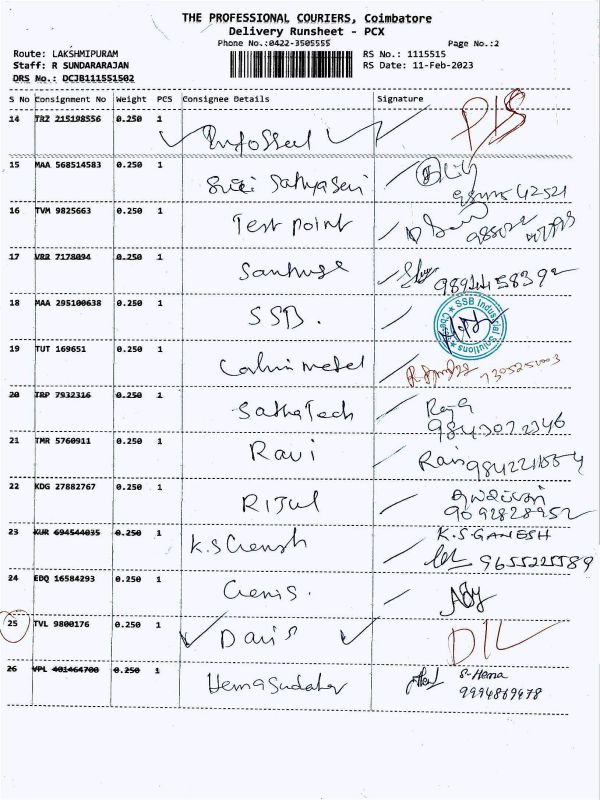 THE PROFESSIONAL COURIERS, Coimbatore
Delivery Runsheet - PCX
Phone No.:0422-3505555 Page No.:2
Route: LAKSHMIPURAM RS No.: 1115515
Staff: R SUNDARARAJAN RS Date: 11-Feb-2023
DRS No.: DCJB111551502
S No Consignment No Weight PCS Consignee Details Signature
14 TRZ 215198556 0.250 1
15 MAA 568514583 0.250 1
16 TVM 9825663 0.250 1
Test point
17 VRR 7178094 0.250 1
18 MAA 295100638 0.250 1
SSB.
SSB Industrial Solutions
19 TUT 169651 0.250 1
7305251003
20 TRP 7932316 0.250 1
SathaTech Raja
9843072346
21 TMR 5760911 0.250 1
Ravi Ravi
22 KDG 27882767 0.250 1
9092828952
23 KUR 694544035 0.250 1
K.S.GANESH
K.S Ganesh 9655225589
24 EDQ 16584293 0.250 1
25 TVL 9800176 0.250 1
26 VPL 401464700 0.250 1
Hemasudakar S-Hema
9994869678